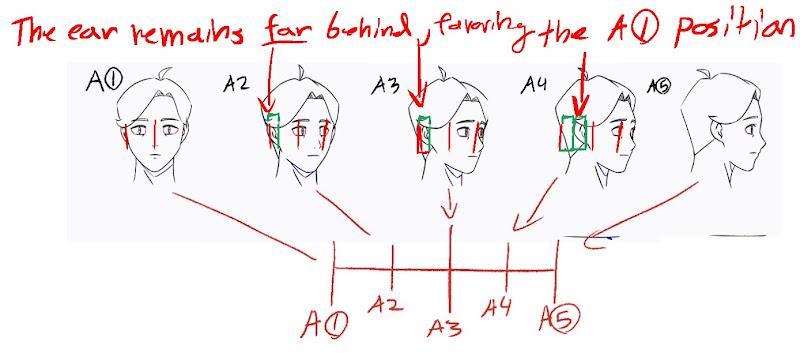 The ear remains far behind, favoring the A① position
A① A2 A3 A4 A⑤
A① A2 A3 A4 A⑤